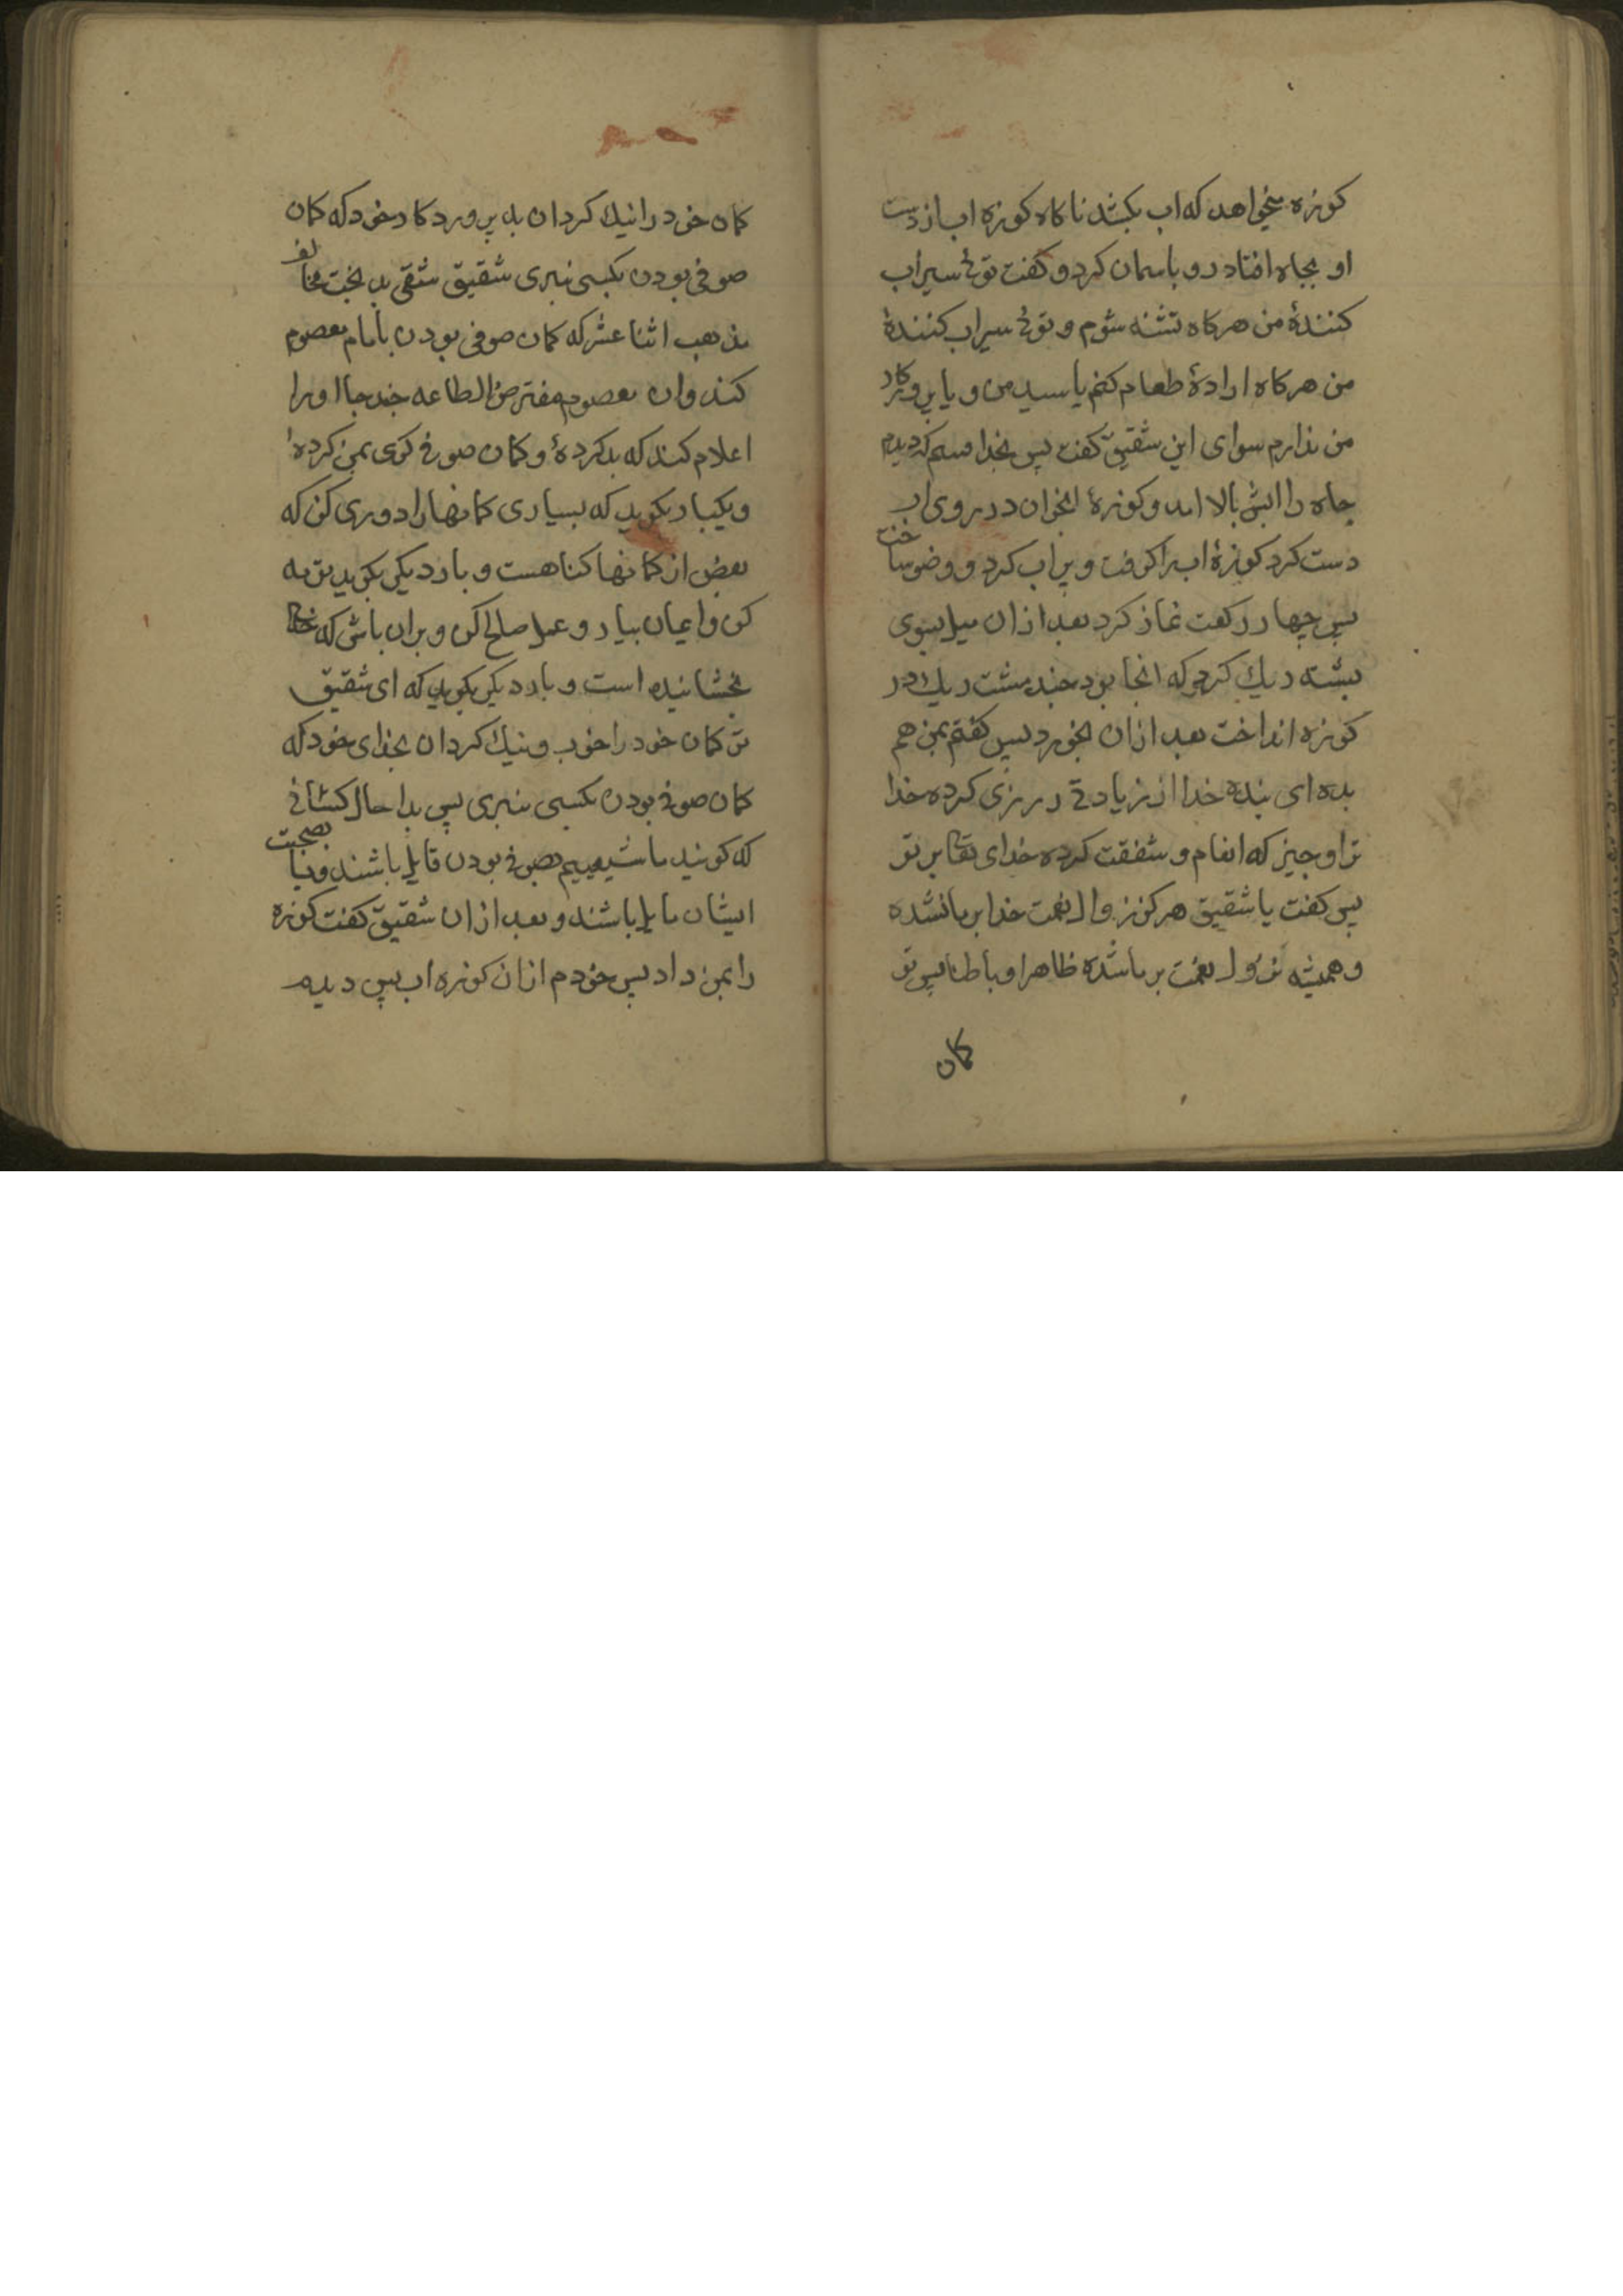 کوزه میخواهد که اب بکشد ناکاه کوزه اب از دست
او بچاه افتاد رو باسمان کرد و کفت توئ سیراب
کنندهٔ من هرکاه تشنه شوم و توئ سیراب کنندهٔ
من هرکاه ارادهٔ طعام کنم یا سیدی من و یا پروردکار
من ندارم سوای این شقیق کفت پس بخدا قسم که دیدم
چاه را ابش بالا امد و کوزهٔ انجوان در روی اب
دست کرد کوزهٔ اب را کرفت و پر اب کرد و وضو ساخت
پس چهار رکعت نماز کرد بعد از ان میل بسوی
پشته ریك کرد که انجا بود چند مشت ریك در
کوزه انداخت بعد از ان بخورد پس کفتم بمن هم
بده ای بنده خدا از زیادتی در رزی کرده خدا
ترا و چیز که انعام و شفقت کرده خدای تعا بر تو
پس کفت یا شقیق هرکز زوال نعمت خدا بر ما نشده
و همیشه نزول نعمت بر ما شده ظاهرا و باطنا پس تو
کمان
کمان خود را نیك کردان به پروردکار خود که کمان
صوفی بودن بکسی نبری شقیق شقی بد بخت مخالف
مذهب اثنا عشر که کمان صوفی بودن بامام معصوم
کند وان معصوم مفترض الطاعه چند جا او را
اعلام کند که بد کردهٔ و کمان صوفی کری بمن کردهٔ
و یکبار بکوید که بسیاری کمانها را دوری کن که
بعض از کمانها کناهست و بار دیکر بکوید توبه
کن و ایمان بیار و عمل صالح کن و بران باش که خدا
بخشاینده است و بار دیکر بکوید که ای شقیق
تو کمان خود را خوب و نیك کردان بخدای خود که
کمان صوفی بودن بکسی نبری پس بدا حال کسانی
که کویند ما شیعییم بصوفی بودن قایل باشند و بصحبت
ایشان مایل باشند و بعد از ان شقیق کفت کوزه
را بمن داد پس خوردم از ان کوزه اب پس دیدم